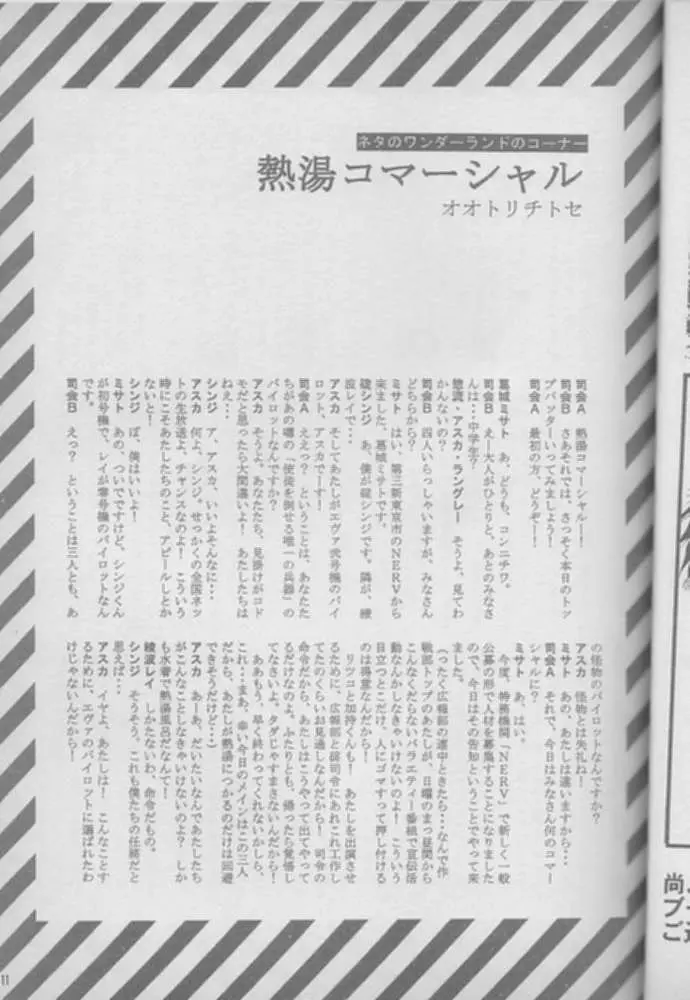 ネタのワンダーランドのコーナー
熱湯コマーシャル
オオトリチトセ
司会A 熱湯コマーシャル!!
司会B さあそれでは、さっそく本日のトッ
プバッターいってみましょう!
司会A 最初の方、どうぞ!!
葛城ミサト あ、どうも、コンニチワ。
司会B えー大人がひとりと、あとのみなさ
んは…中学生?
惣流・アスカ・ラングレー そうよ、見てわ
かんないの?
司会B 四人いらっしゃいますが、みなさん
どちらから?
ミサト はい、第三新東京市のNERVから
来ました、葛城ミサトです。
碇シンジ あ、僕が碇シンジです。隣が、綾
波レイで…
アスカ そしてあたしがエヴァ弐号機のパイ
ロット、アスカでーす!
司会A えええ? ということは、あなたた
ちがあの噂の「使徒を倒せる唯一の兵器」の
パイロットなんですか?
アスカ そうよ。あなたたち、見掛けがコド
モだと思ったら大間違いよ! あたしたちは
ねえ…
シンジ ア、アスカ、いいよそんなに…
アスカ 何よ、シンジ。せっかくの全国ネッ
トの生放送よ、チャンスなのよ! こういう
時にこそあたしたちのこと、アピールしとか
ないと!
シンジ ぼ、僕はいいよ!
ミサト あの、ついでですけど、シンジくん
が初号機で、レイが零号機のパイロットなん
です。
司会B えっ? ということは三人とも、あ
の怪物のパイロットなんですか?
アスカ 怪物とは失礼ね!
ミサト あの、あたしは違いますから…
司会A それで、今日はみなさん何のコマー
シャルに?
ミサト あ、はい。
今度、特務機関「NERV」で新しく一般
公募の形で人材を募集することになりました
ので、今日はその告知ということでやって来
ました。
(ったく広報部の連中ときたら…なんで作
戦部トップのあたしが、日曜のまっ昼間から
こんなくだらないバラエティー番組で宣伝活
動なんかしなきゃいけないのよ! こういう
目立つとこだけ、人にゴマすって押し付ける
のは得意なんだから!
リツコと加持くんも! あたしを出演させ
るために、広報部と碇司令にあれこれ工作し
てたのくらいお見通しなんだから! 司令の
命令だから、あたしはこうやって出てやって
るだけなのよ。ふたりとも、帰ったら覚悟し
てなさいよ、タダじゃすまさないんだから!
ああもう、早く終わってくれないかしら、
これ…まあ、幸い今日のメインはこの三人
だから、あたしが熱湯につかるのだけは回避
できそうだけど…)
アスカ あーあ、だいたいなんであたしたち
がこんなことしなきゃいけないのよ? しか
も水着で熱湯風呂だなんて!
綾波レイ しかたないわ、命令だもの。
シンジ そうそう。これも僕たちの任務だと
思えば…
アスカ イヤよ、あたしは! こんなことす
るために、エヴァのパイロットに選ばれたわ
けじゃないんだから!
11